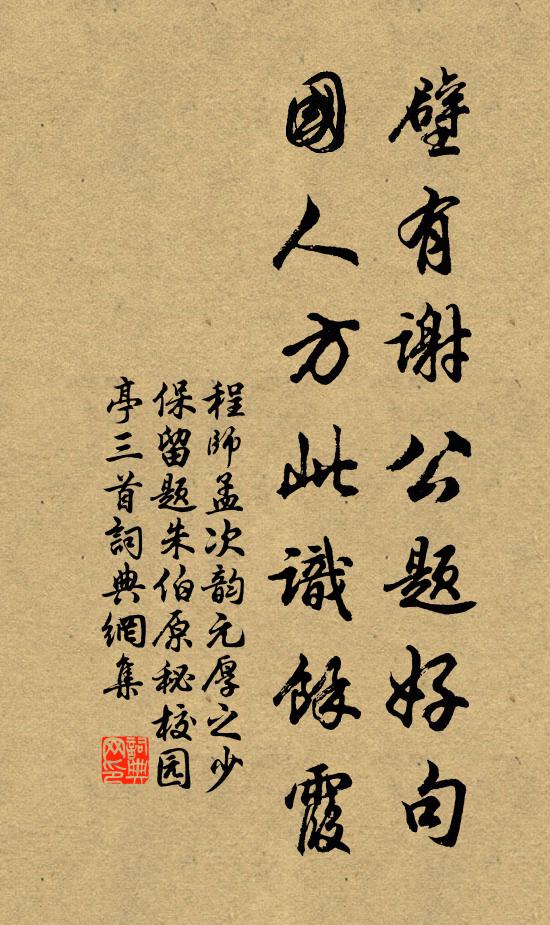 壁有谢公题好句
國人方此識餘霞
程師孟次韵元厚之少
保留题朱伯原秘校园
亭三首詞典網集
詞典网印